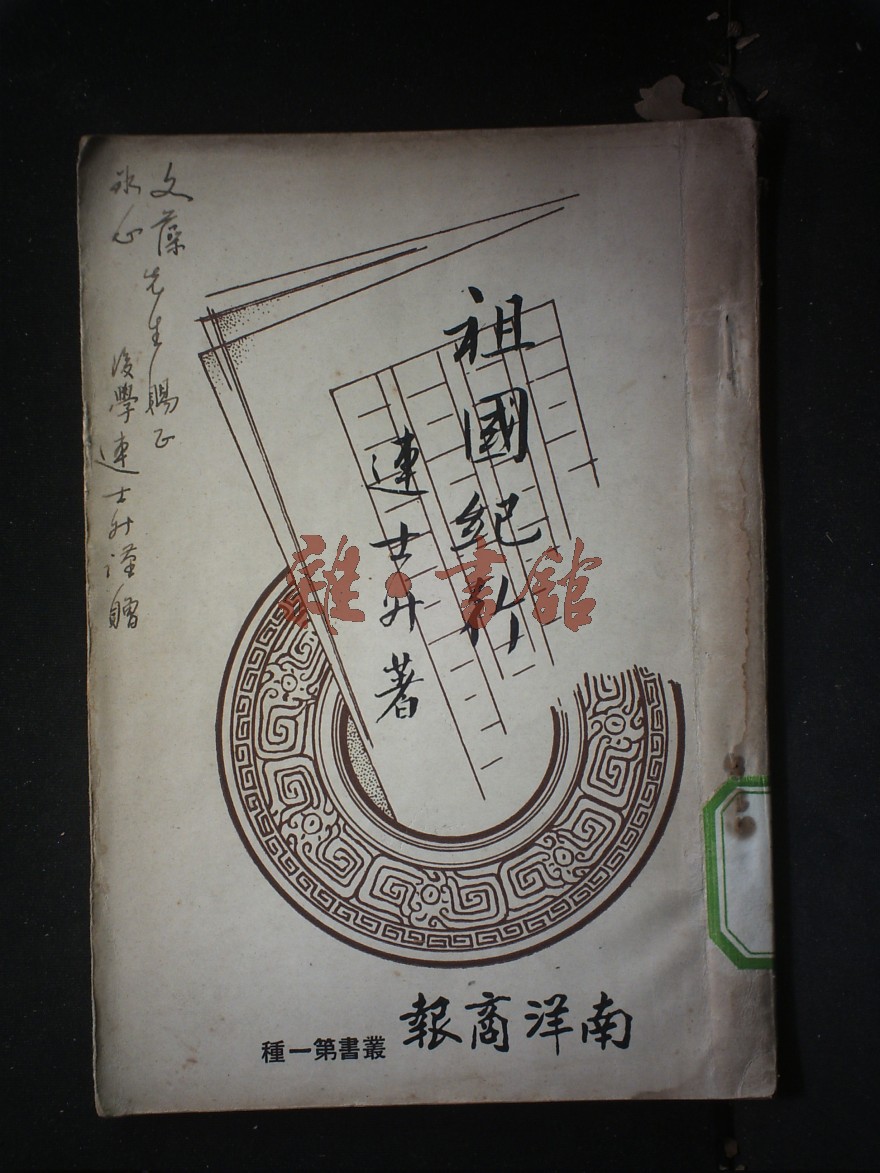 文藻
冰心
先生賜正
後學連士升謹贈
祖國紀行
連士升著
雅·書館
南洋商報
叢書第一種